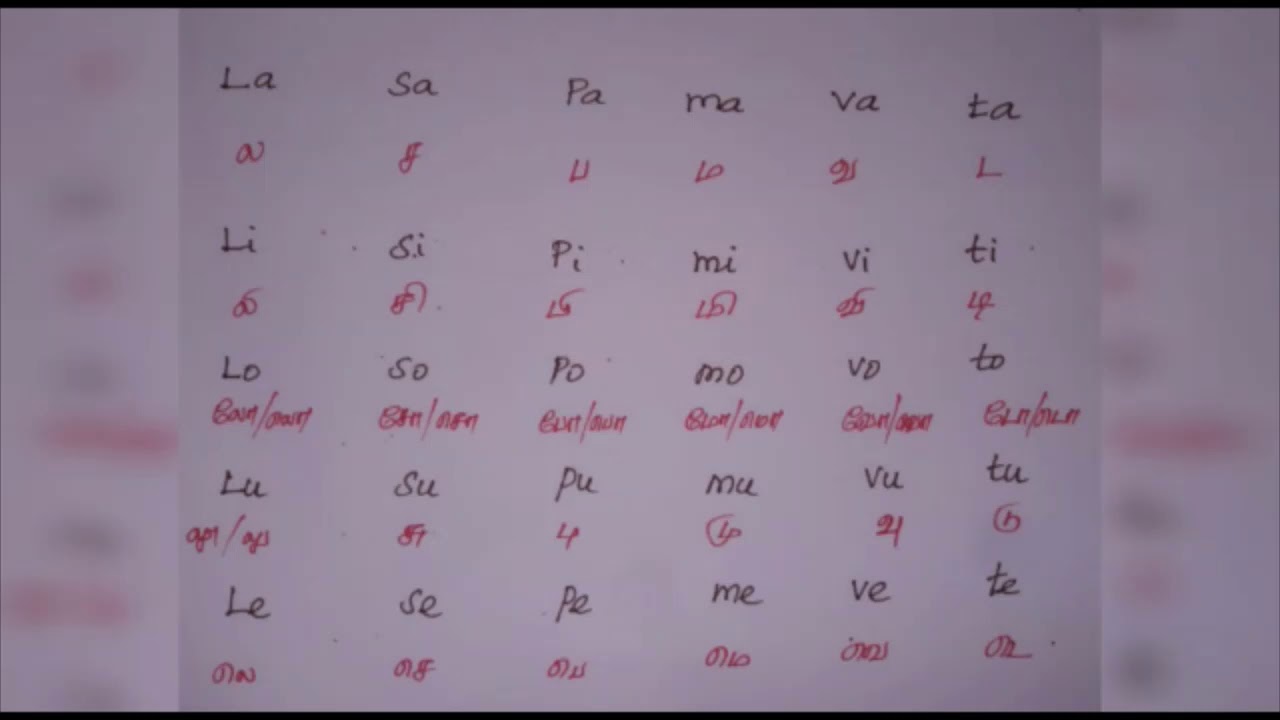 La Sa Pa ma va ta
ல ச ப ம வ ட
Li Si Pi mi vi ti
லி சி பி மி வி டி
Lo So Po mo vo to
லோ/லொ சோ/சொ போ/பொ மோ/மொ வோ/வொ டோ/டொ
Lu Su Pu mu vu tu
லூ/லு சு பு மு வு டு
Le Se Pe me ve te
லெ செ பெ மெ வெ டெ